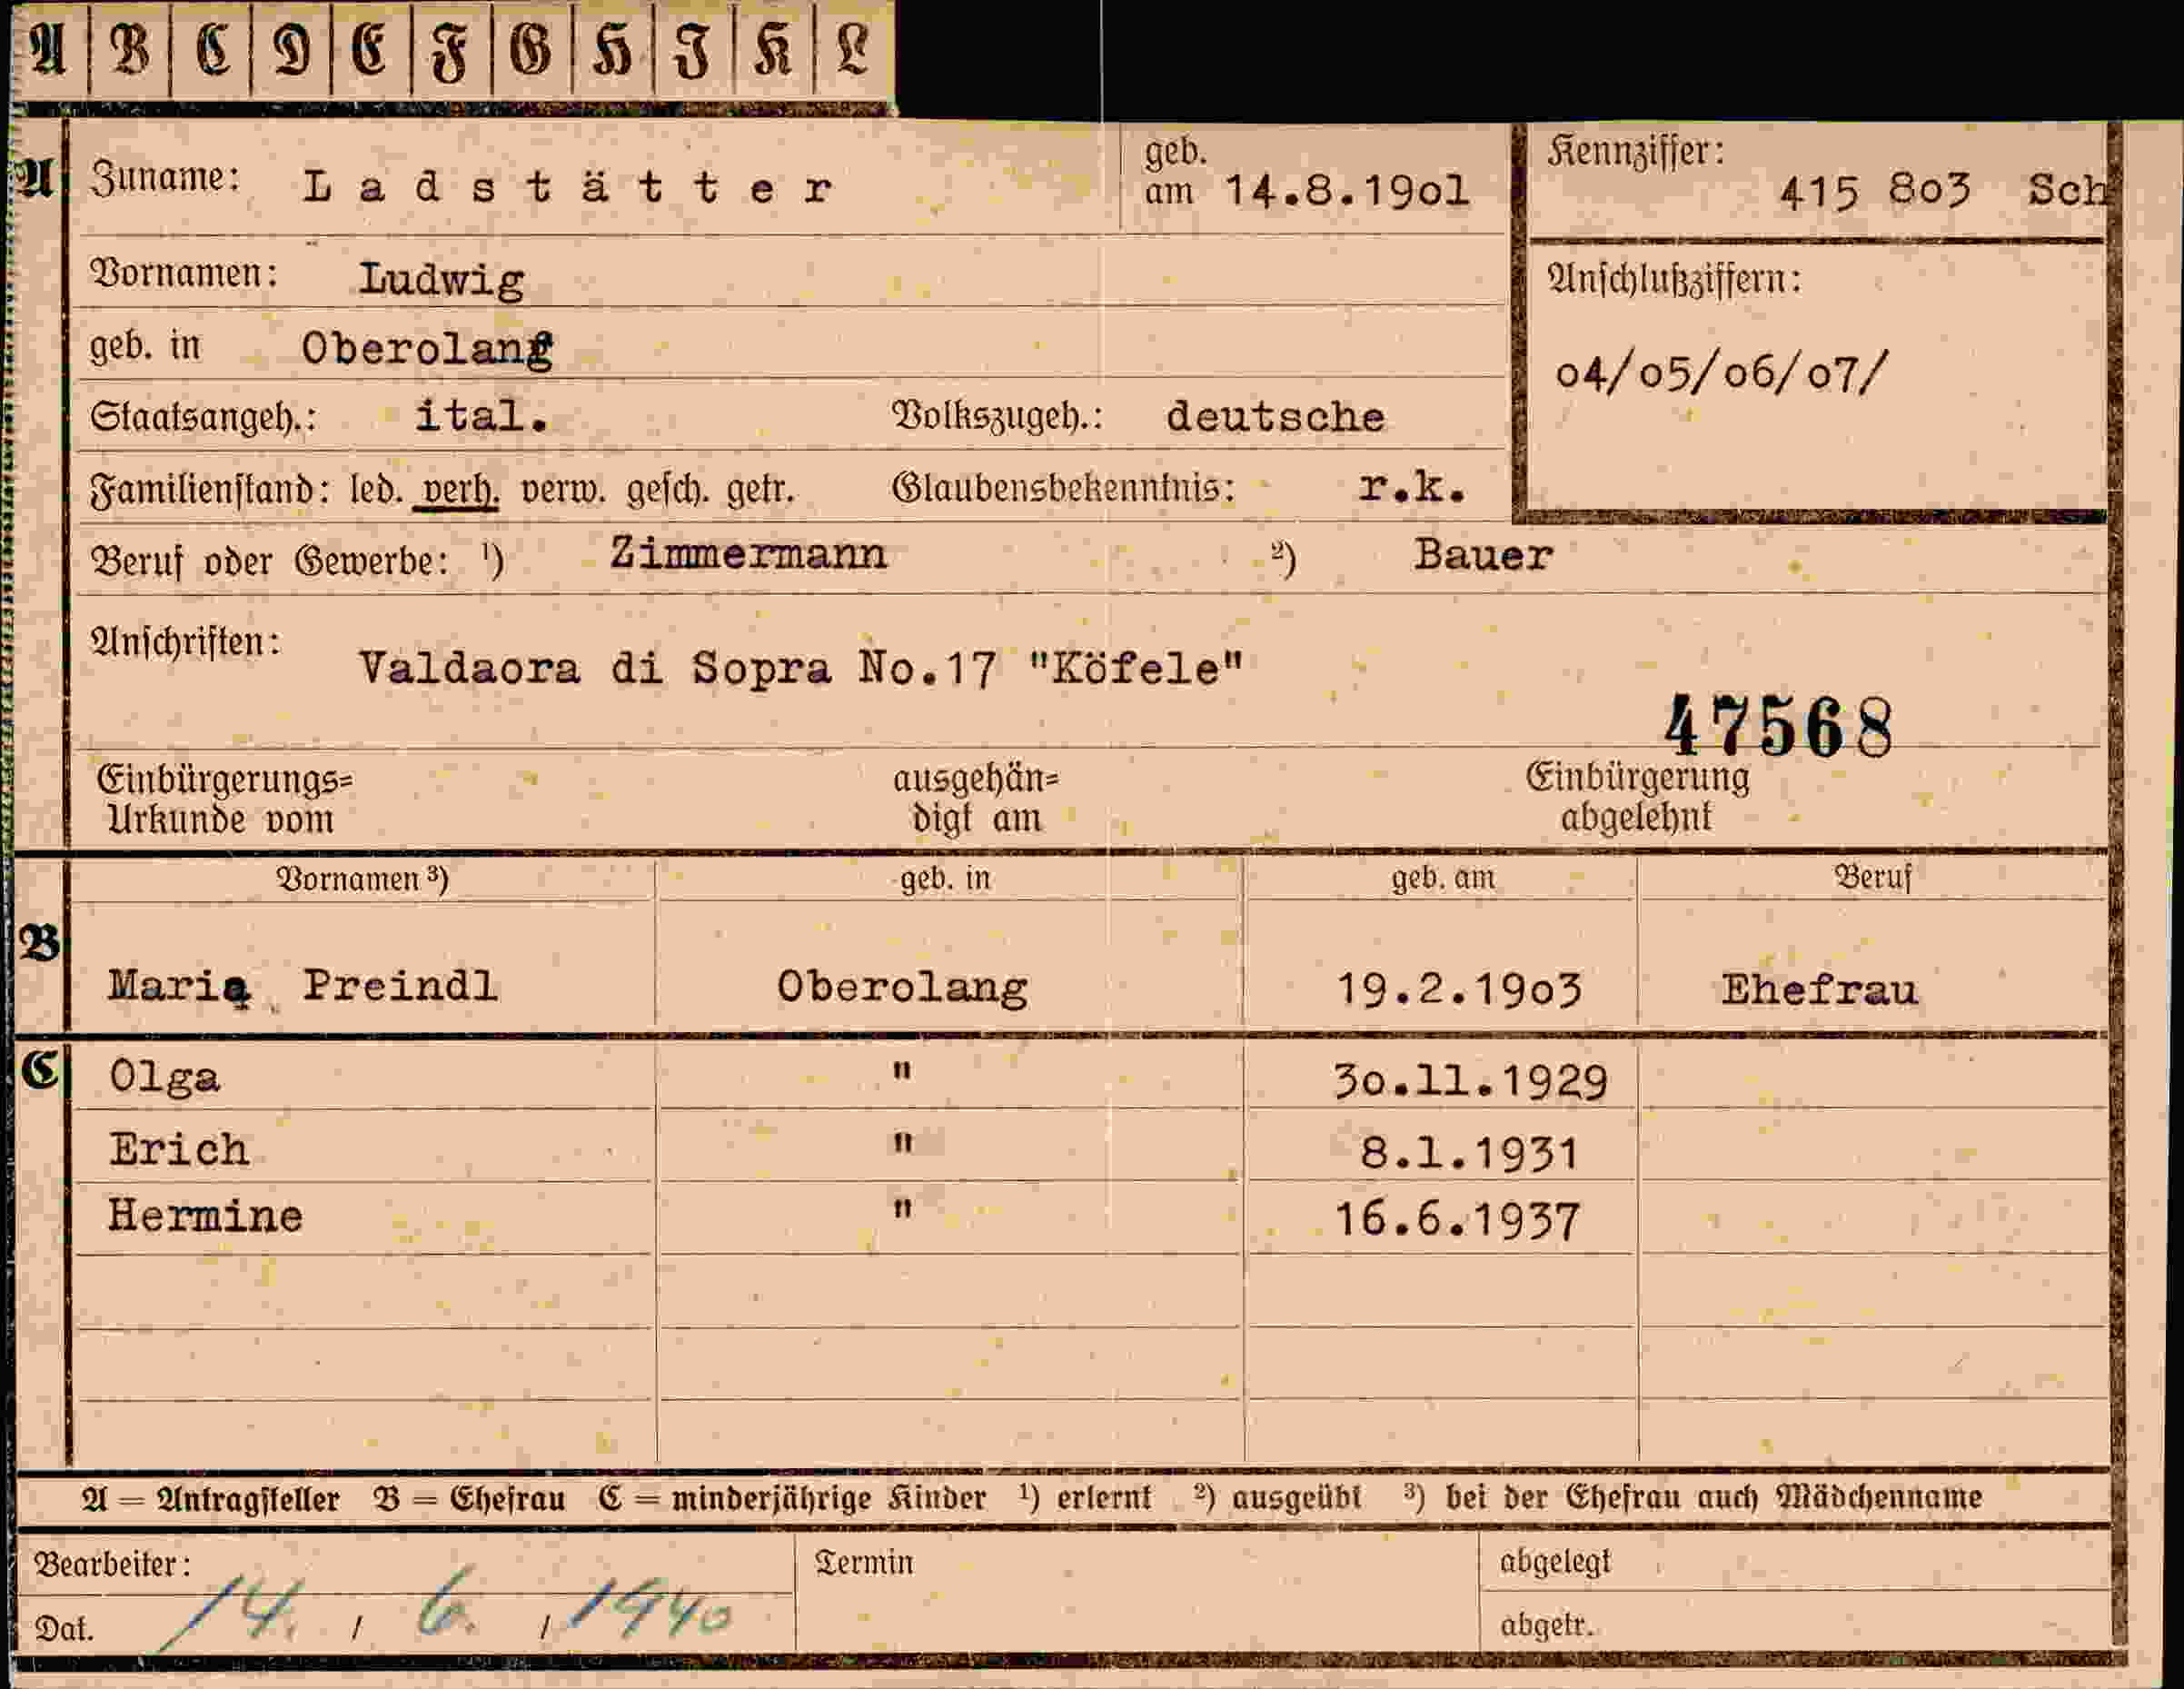 A B C D E F G H J K L
A Zuname: Ladstätter geb. am 14.8.19o1 Kennziffer: 415 8o3 Sch
Vornamen: Ludwig Anschlußziffern:
geb. in Oberolang o4/o5/o6/o7/
Staatsangeh.: ital. Volkszugeh.: deutsche
Familienstand: led. verh. verw. gesch. getr. Glaubensbekenntnis: r.k.
Beruf oder Gewerbe: ¹) Zimmermann ²) Bauer
Anschriften: Valdaora di Sopra No.17 "Köfele"
47568
Einbürgerungs= ausgehän= Einbürgerung
Urkunde vom digt am abgelehnt
Vornamen ³) geb. in geb. am Beruf
B Maria Preindl Oberolang 19.2.19o3 Ehefrau
C Olga " 3o.11.1929
Erich " 8.1.1931
Hermine " 16.6.1937
A = Antragsteller B = Ehefrau C = minderjährige Kinder ¹) erlernt ²) ausgeübt ³) bei der Ehefrau auch Mädchenname
Bearbeiter: Termin abgelegt
Dat. 14. / 6. / 1940 abgetr.